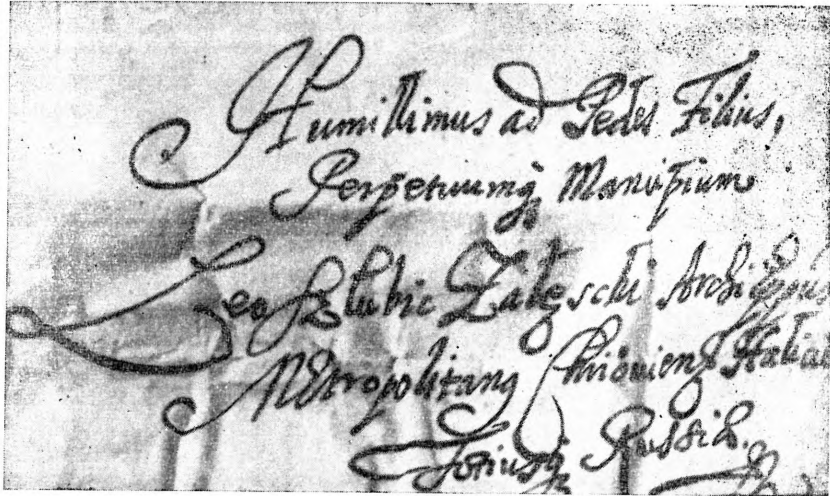 Humillimus ad Pedes Filius,
Perpetuumq; Mancipium
Leo Szlubic Załęschi Archiepp̃us
Metropolitanq Chiioviens Haliciens
Totiusq; Russiæ.